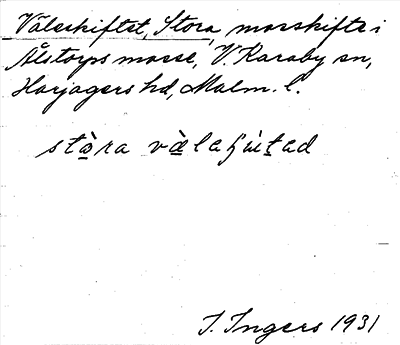 Väleskiftet, Stora, mosskifte i
Ålstorps mosse, V. Karaby sn,
Harjagers hd, Malm. l.
J. Ingers 1931